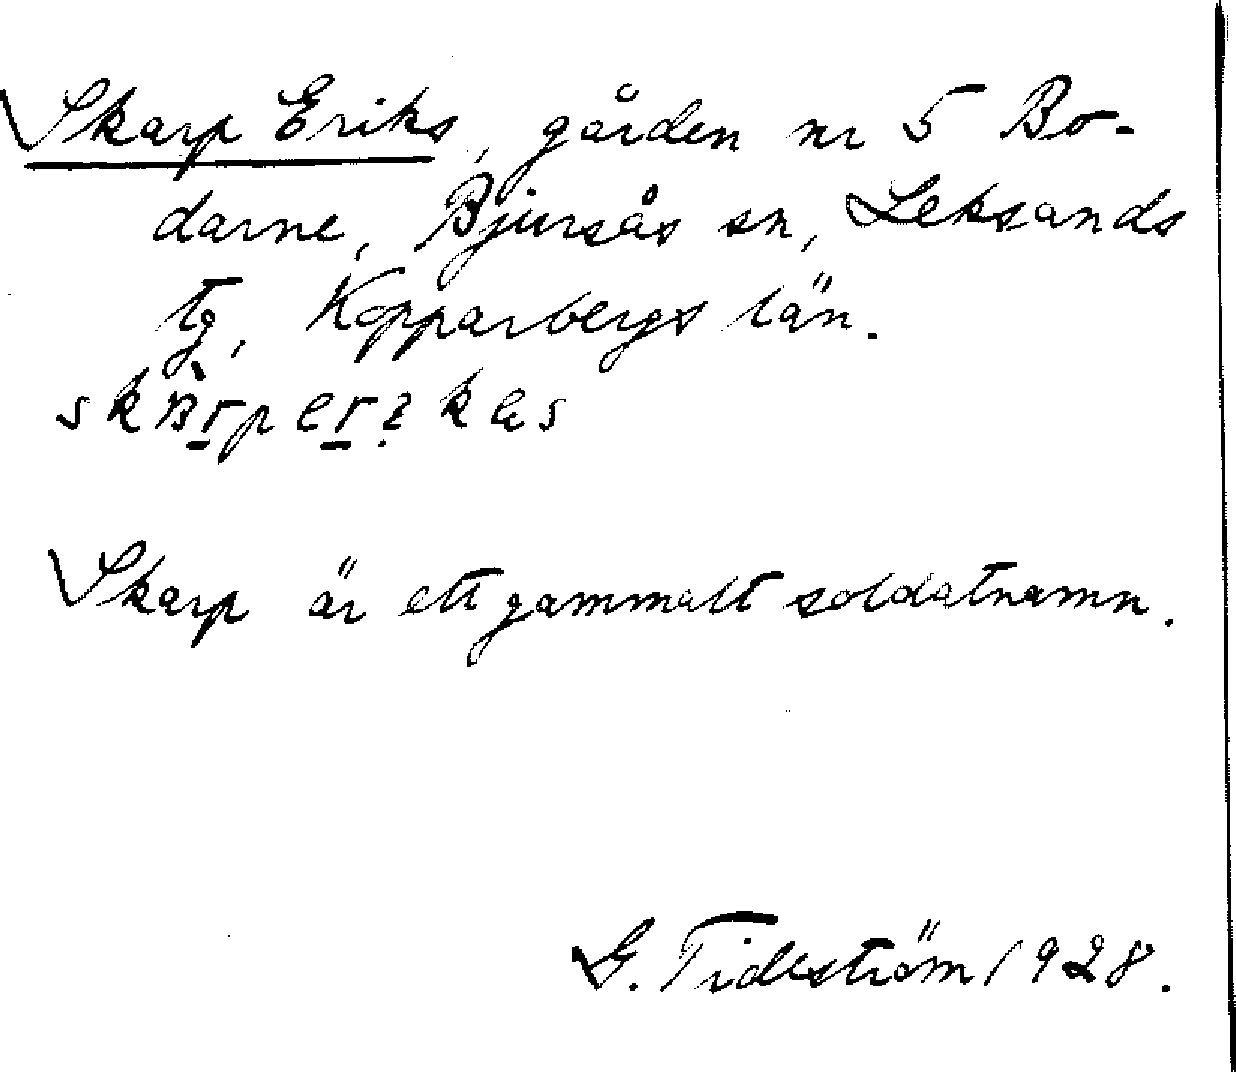 Skarp Eriks, gården nr 5 Bo-
darne, Bjursås sn, Leksands
tg, Kopparbergs län.
Skarp är ett gammalt soldatnamn.
G. Tideström 1928.